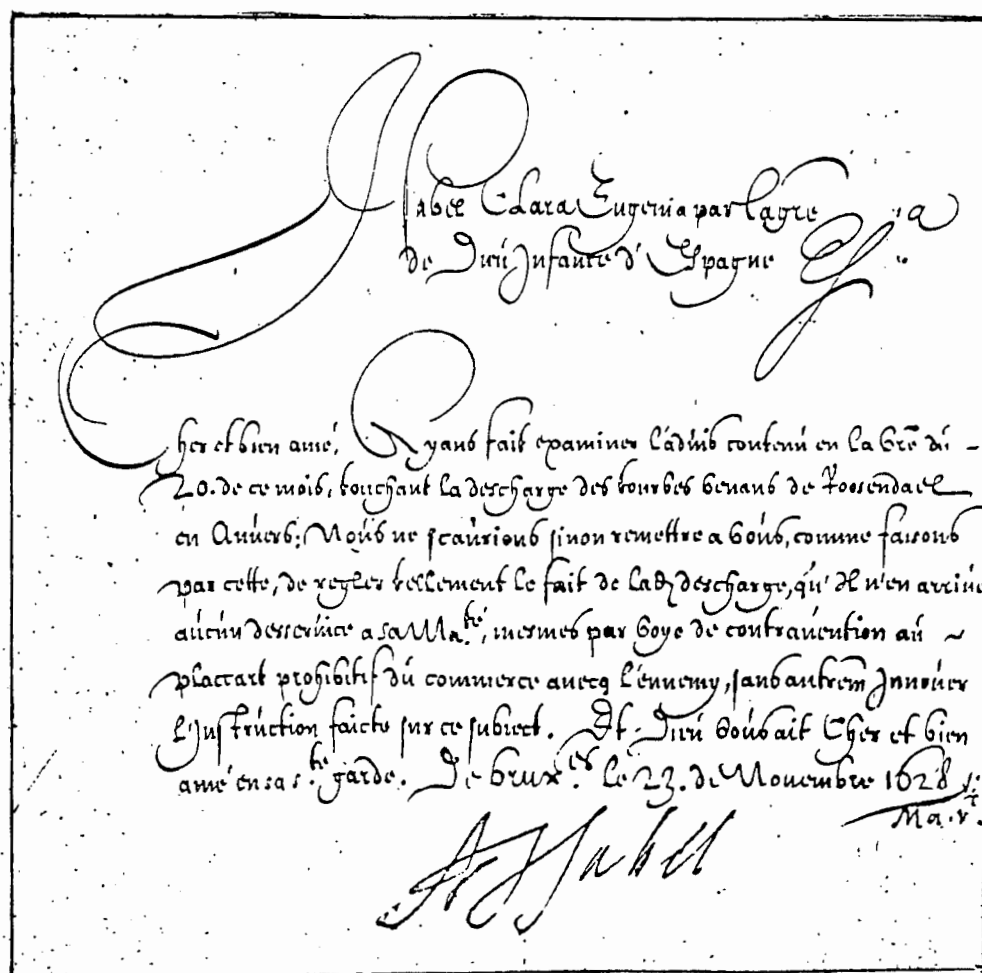 Isabel Clara Eugenia par la gre
de Dieu Infante d'Espagne &.a
Cher et bien amé, Ayans fait examiner l'aduis contenu en la vre du -
20. de ce mois, touchant la descharge des tourbes venans de Roosendael
en Anuers; Nous ne scaurions sinon remettre a vous, comme faisons
par cette, de regler tellement le fait de lad. descharge, qu'Il n'en arriue
aucun desseruice a sa Ma.té, mesmes par voye de contrauention au ~
placcart prohibitif du commerce auecq l'ennemy, sans autrem Innouer
l'Instruction faicte sur ce subiect. Et Dieu vous ait Cher et bien
amé en sa s.te garde. De brux.es le 23. de Nouembre 1628
Ma. v.t
A Isabel